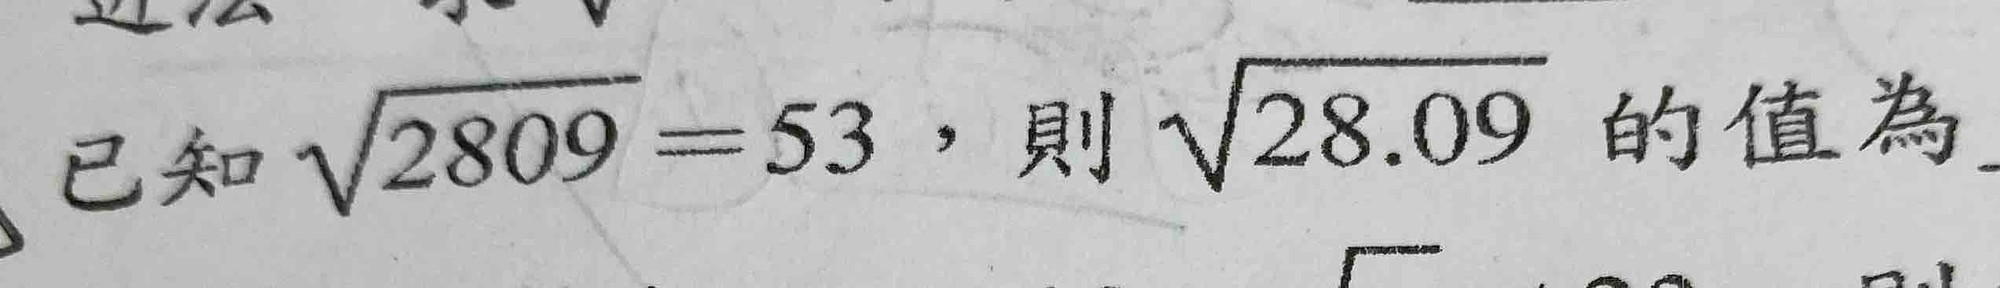 已知 √2809 = 53，則 √28.09 的值為